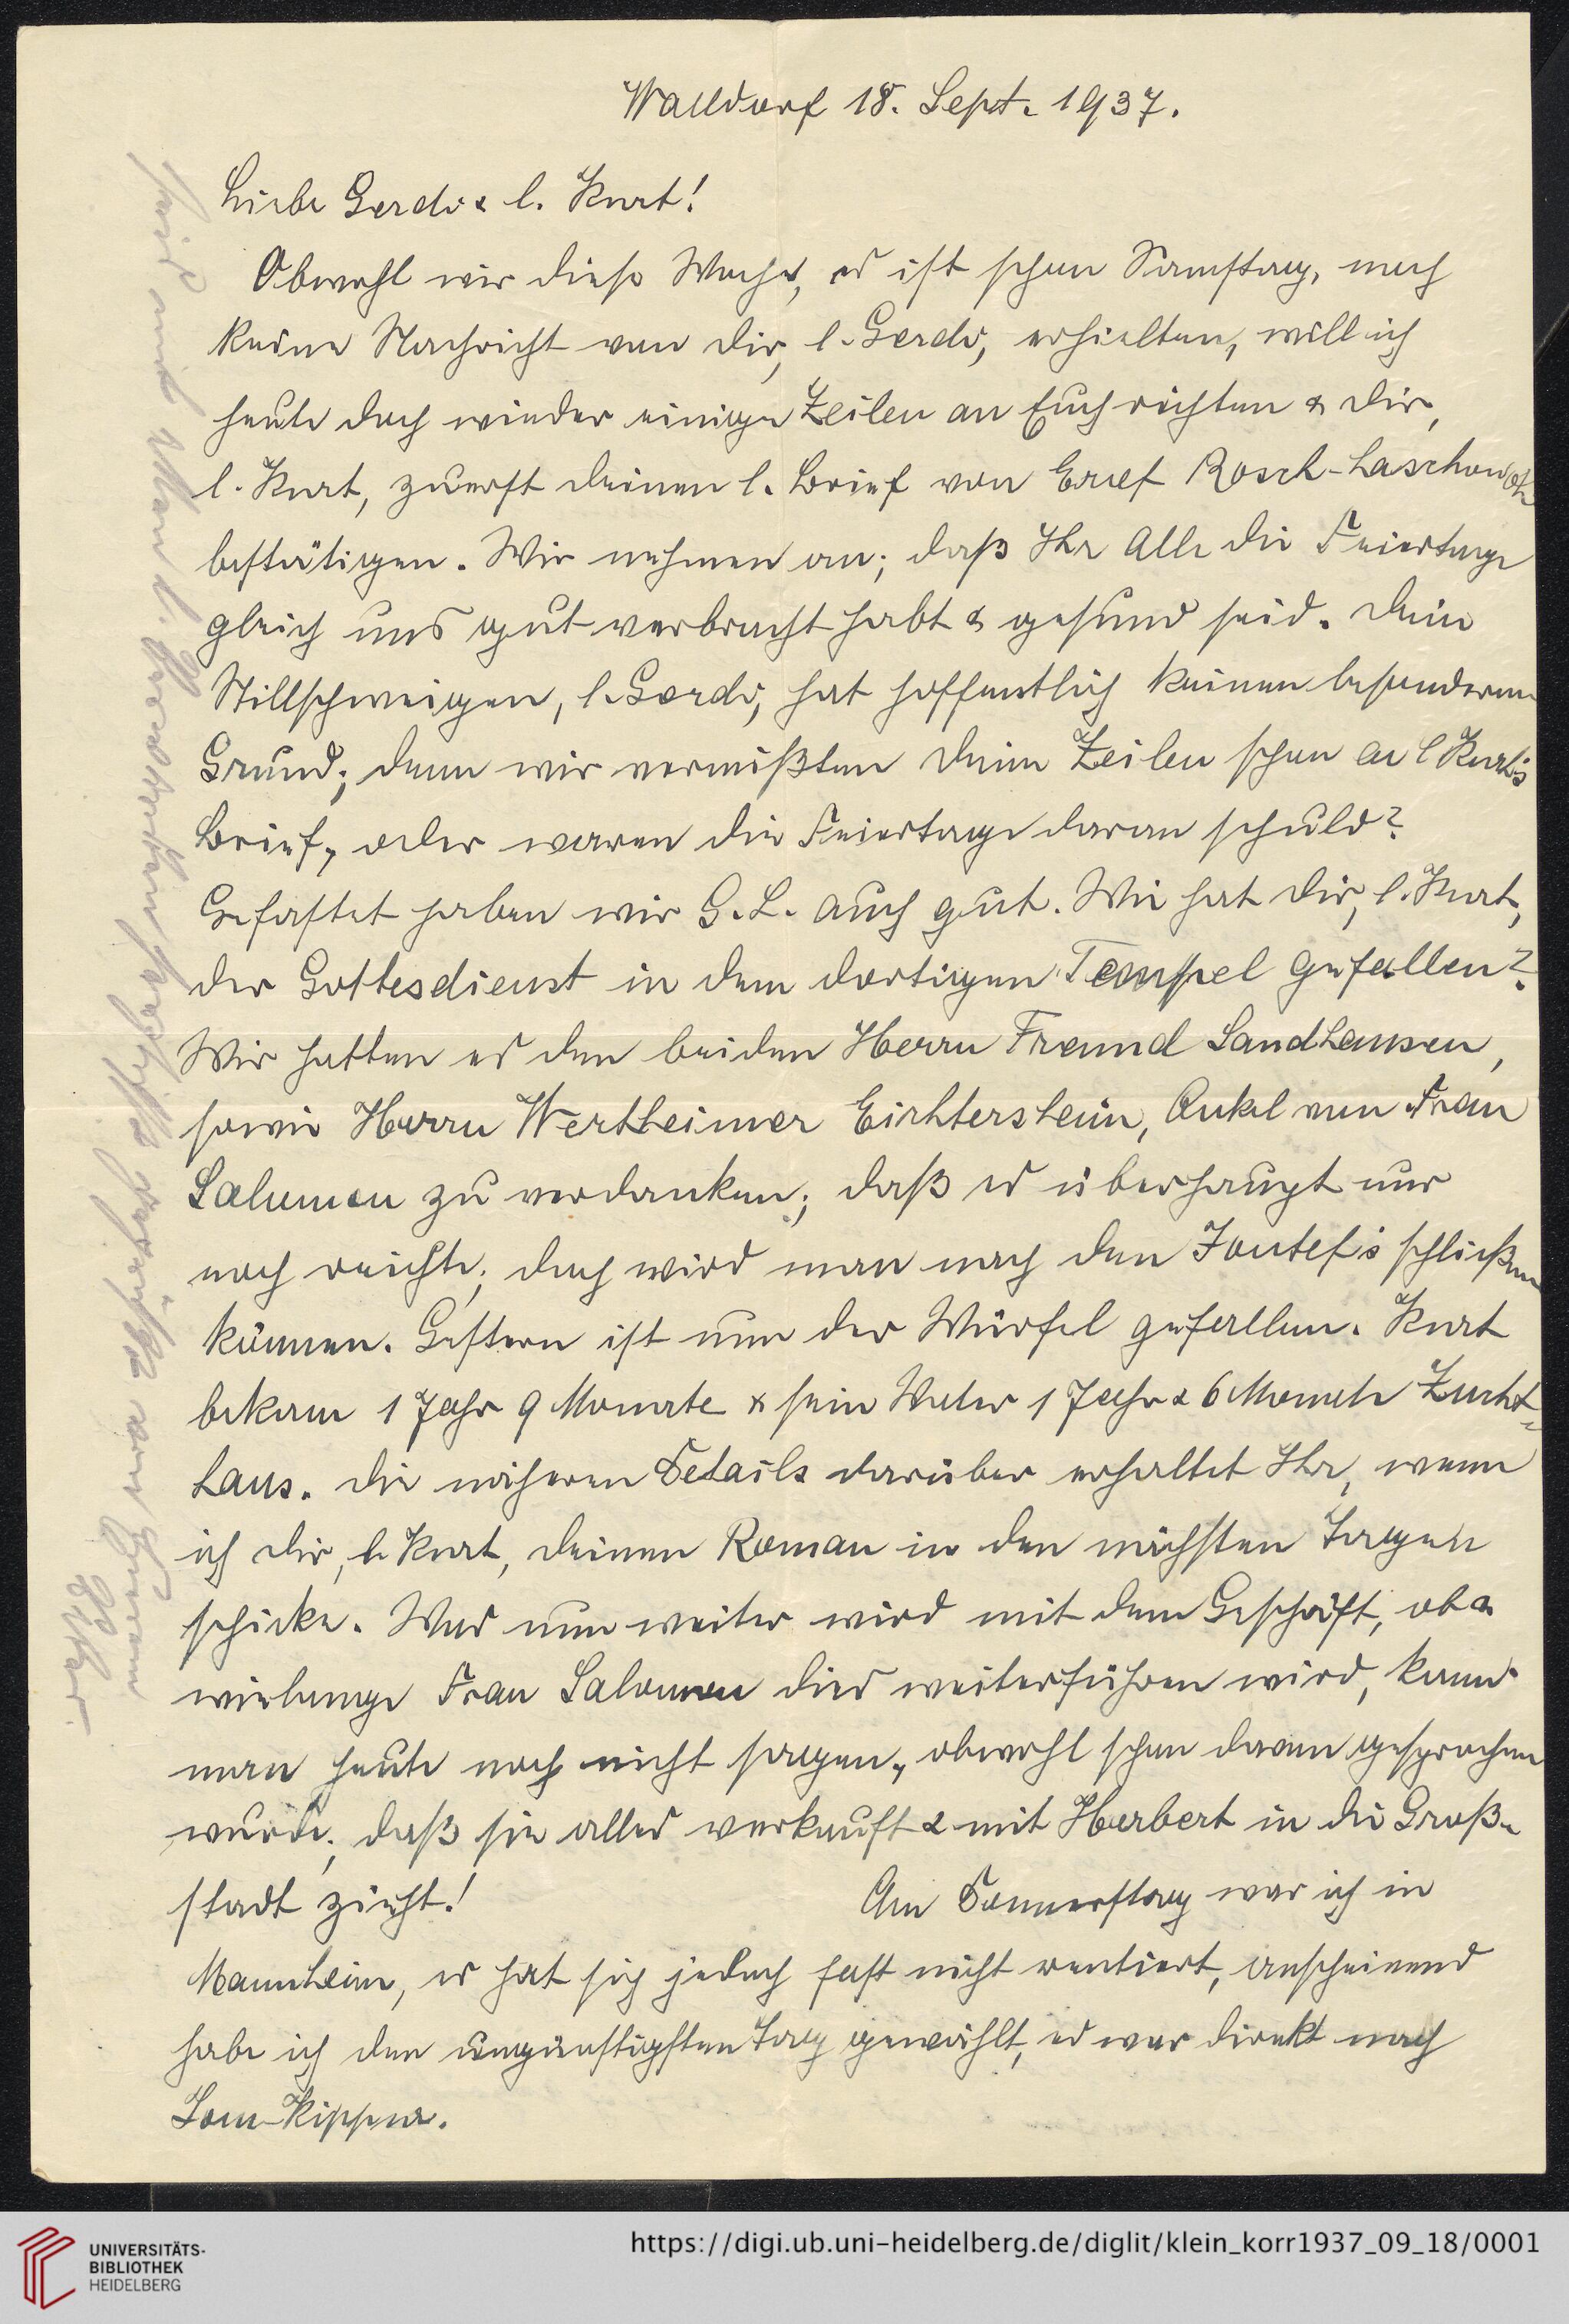 Walldorf 18. Sept. 1937.
Liebe Gerda & l. Kurt!
Obwohl wir diese Woche, es ist schon Samstag, noch
keine Nachricht von dir, l. Gerda, erhielten, will ich
heute doch wieder einige Zeilen an Euch richten & dir,
l. Kurt, zuerst deinen l. Brief von Eref Rosch-Haschonoh
bestätigen. Wir nehmen an; daß Ihr Alle die Feiertage
gleich uns gut verbracht habt & gesund seid. Dein
Stillschweigen, l. Gerda, hat hoffentlich keinen besonderen
Grund; denn wir vermißten deine Zeilen schon an l Kurt's
Brief, oder waren die Feiertage daran schuld?
Gefastet haben wir G. L. auch gut. Wie hat dir, l. Kurt,
der Gottesdienst in dem dortigen Tempel gefallen?
Wir hatten es den beiden Herrn Freund Sandhausen,
sowie Herrn Wertheimer Eichtersheim, Onkel von Frau
Salomon zu verdanken; daß es überhaupt nur
noch reichte, doch wird man nach den Jontef's schließen
können. Gestern ist nun der Würfel gefallen. Kurt
bekam 1 Jahr 9 Monate & sein Vater 1 Jahr & 6 Monate Zucht-
haus. Die näheren Details darüber erhaltet Ihr, wenn
ich dir, l. Kurt, deinen Roman in den nächsten Tagen
schicke. Was nun weiter wird mit dem Geschäft, ob &
wielange Frau Salomon dies weiterführen wird, kann
man heute noch nicht sagen, obwohl schon davon gesprochen
wurde, daß sie alles verkauft & mit Herbert in die Groß-
stadt zieht! Am Donnerstag war ich in
Mannheim, es hat sich jedoch fast nicht rentiert, anscheinend
habe ich den ungünstigsten Tag gewählt, es war direkt nach
Jom-Kippur.
UNIVERSITÄTS-
BIBLIOTHEK
HEIDELBERG
https://digi.ub.uni-heidelberg.de/diglit/klein_korr1937_09_18/0001